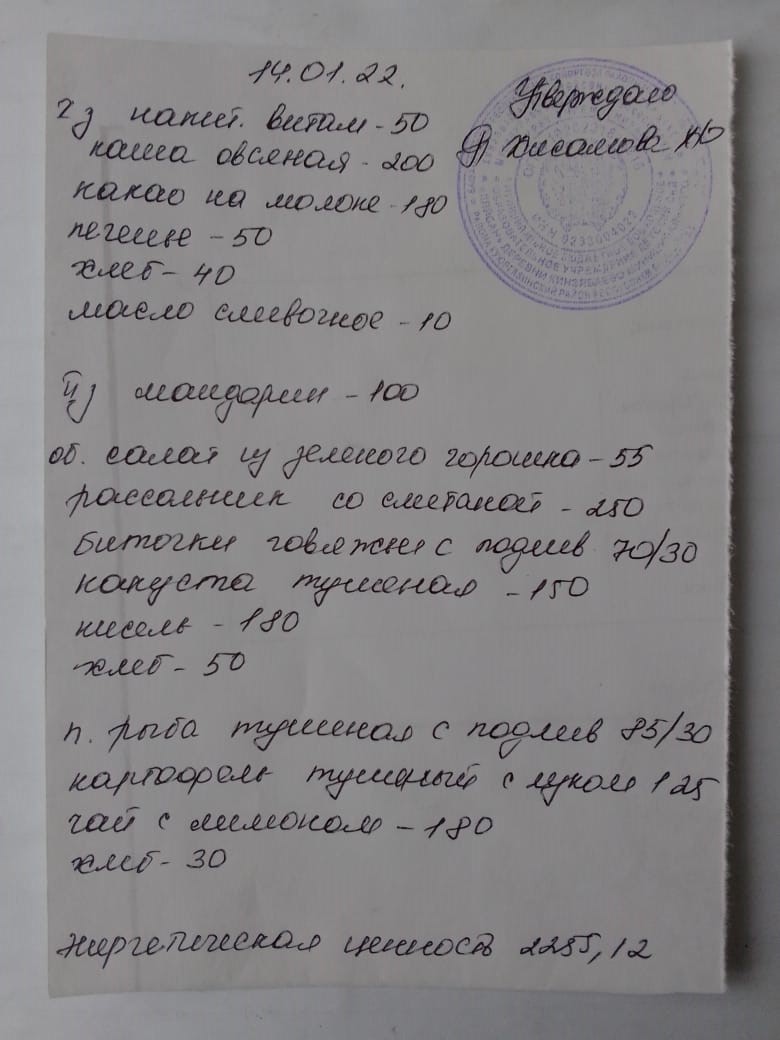 14.01.22.
Утверждаю
Хисамова
напит. витам - 50
каша овсяная - 200
какао на молоке - 180
печенье - 50
хлеб - 40
масло сливочное - 10
II з мандарин - 100
об. салат из зеленого горошка - 55
рассольник со сметаной - 250
биточки говяжьи с подлив 70/30
капуста тушеная - 150
кисель - 180
хлеб - 50
п. рыба тушеная с подлив 85/30
картофель тушеный с луком 125
чай с лимоном - 180
хлеб - 30
энергетическая ценность 2255,12